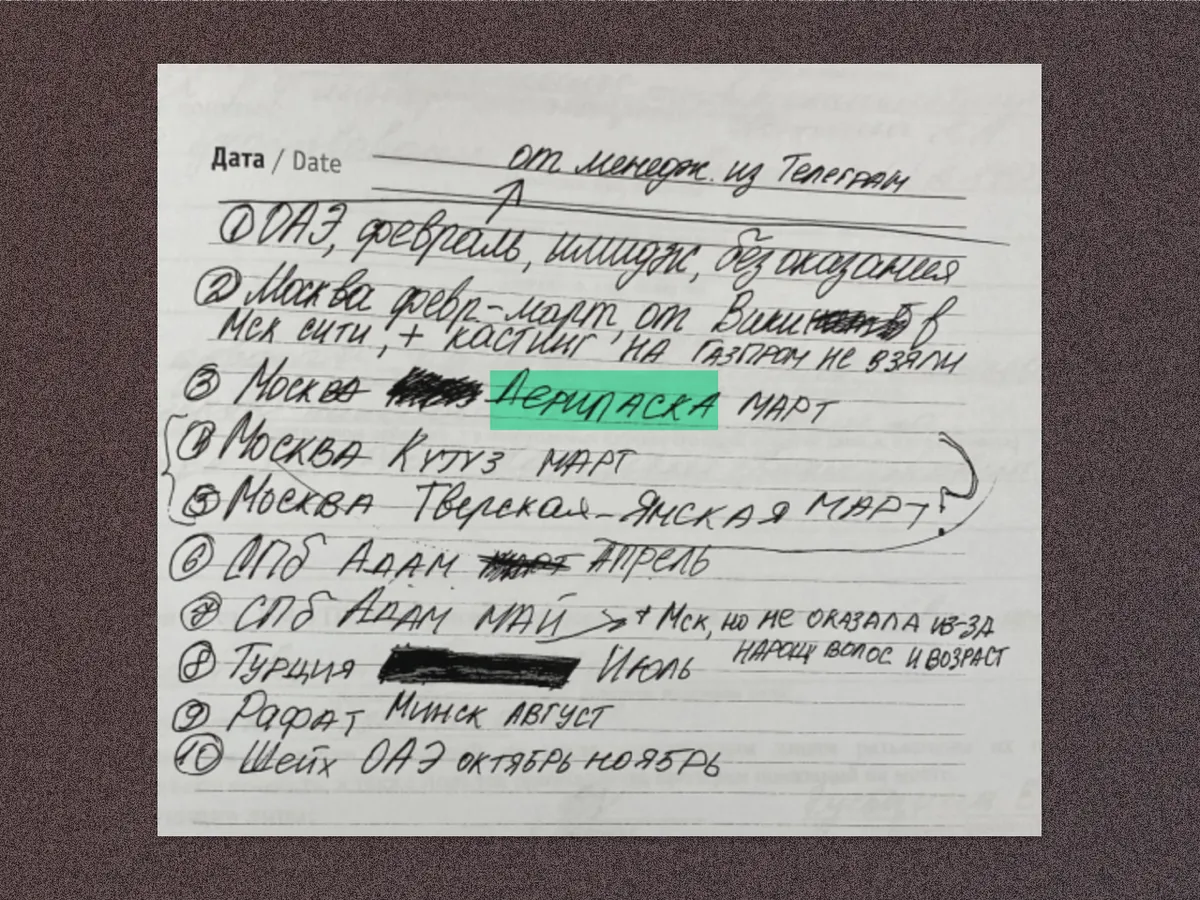 Дата / Date
от менедж. из Телеграм
① ОАЭ, февраль, имидж, без оказания
② Москва февр-март, от Вики в
Мск сити, + кастинг на Газпром не взяли
③ Москва Дерипаска март
④ Москва Кутуз март
⑤ Москва Тверская-Ямская март?
⑥ СПб Адам апрель
⑦ СПб Адам май → + Мск, но не оказала из-за
нарощ волос и возраст
⑧ Турция Июль
⑨ Рафат Минск август
⑩ Шейх ОАЭ октябрь ноябрь